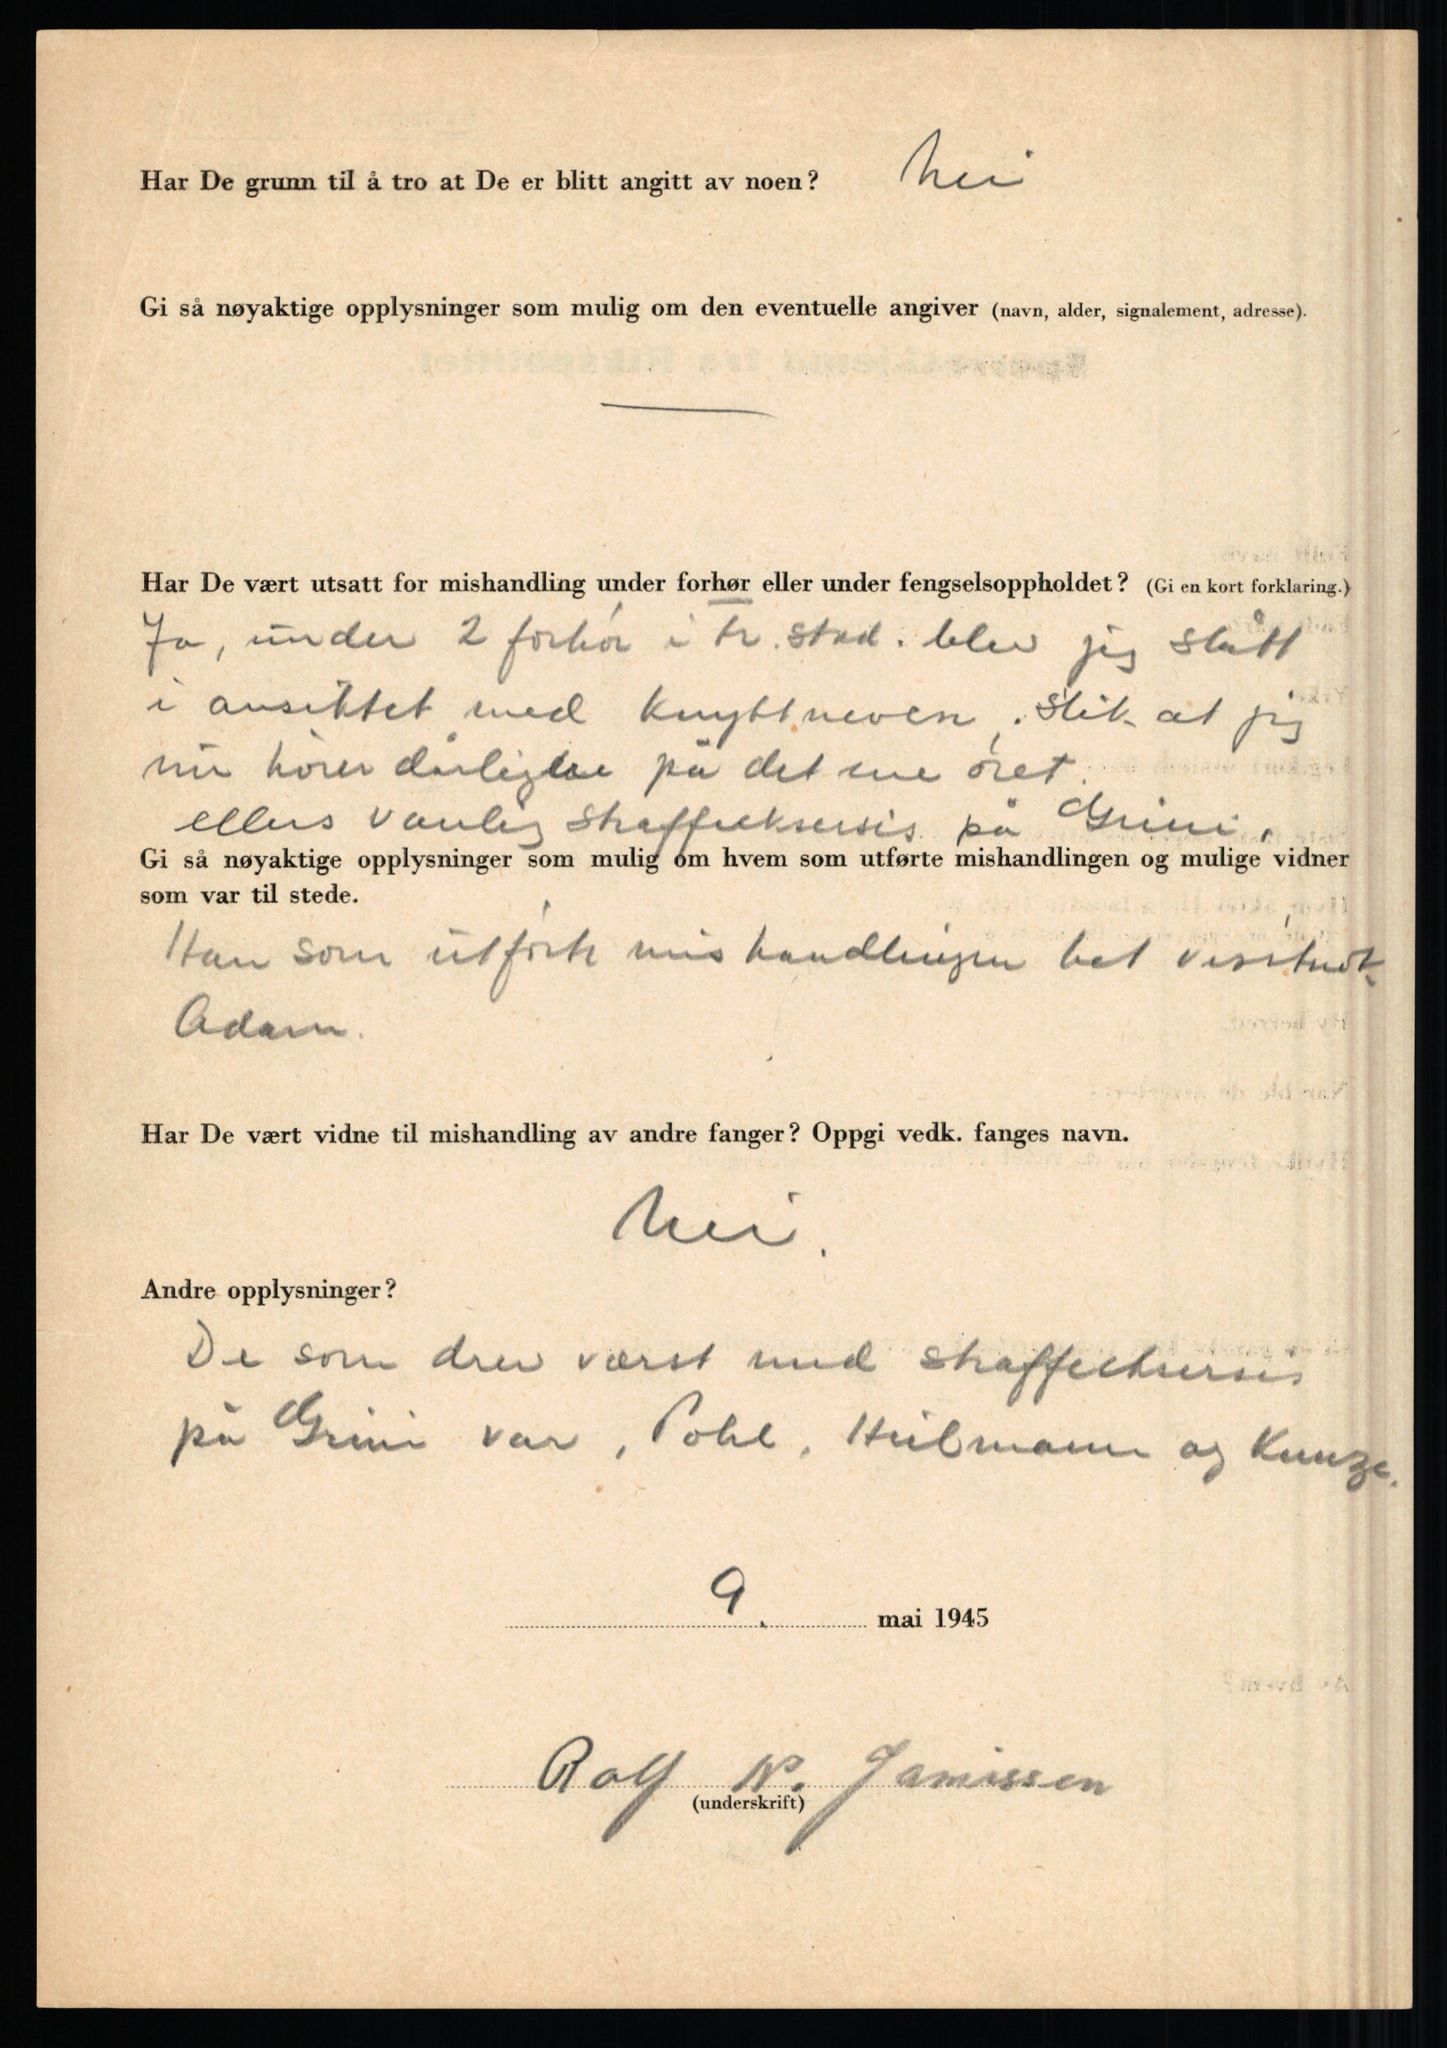 Har De grunn til å tro at De er blitt angitt av noen? Nei
Gi så nøyaktige opplysninger som mulig om den eventuelle angiver (navn, alder, signalement, adresse).
Har De vært utsatt for mishandling under forhør eller under fengselsoppholdet? (Gi en kort forklaring.)
Ja, under 2 forhör i Tr. stad. blev jeg slått
i ansiktet med knyttneven, slik at jeg
nu hörer dårligere på det ene öret.
ellers vanlig straffeeksersis på Grini.
Gi så nøyaktige opplysninger som mulig om hvem som utførte mishandlingen og mulige vidner
som var til stede.
Han som utförte mishandlingen het visstnok
Adam.
Har De vært vidne til mishandling av andre fanger? Oppgi vedk. fanges navn.
Nei.
Andre opplysninger?
De som drev værst med straffeeksersis
på Grini var, Pohl, Heilmann og Kunze.
9. mai 1945
Rolf N. Jamissen
(underskrift)